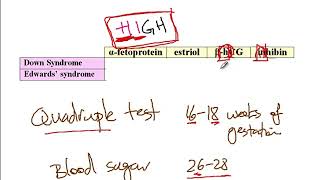 HIGH
α-fetoprotein estriol β-hCG inhibin
Down Syndrome
Edwards' syndrome
Quadruple test 16-18 weeks of
gestation
Blood sugar 26-28